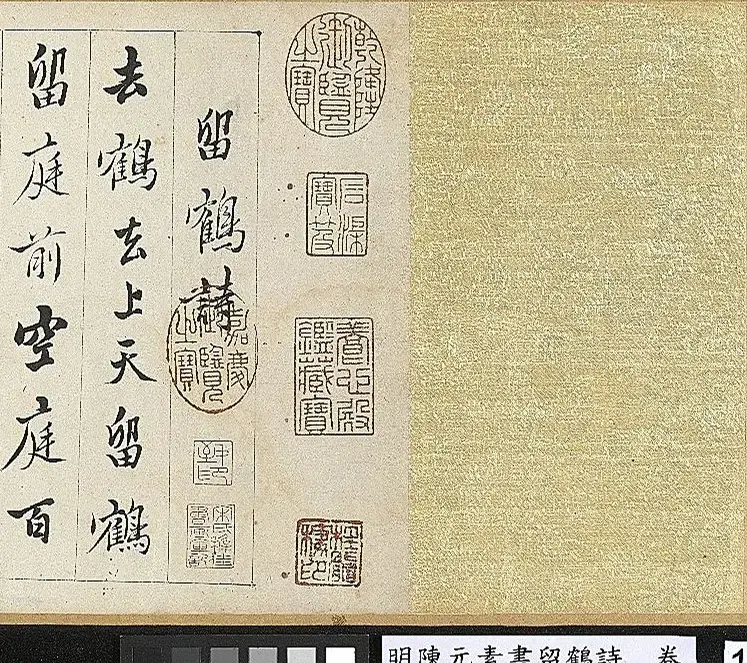 乾隆御覽之寶
石渠寶笈
養心殿鑑藏寶
留鶴詩
嘉慶御覽之寶
去鶴去上天留鶴
留庭前空庭百
明陳元素書留鶴詩 卷
1